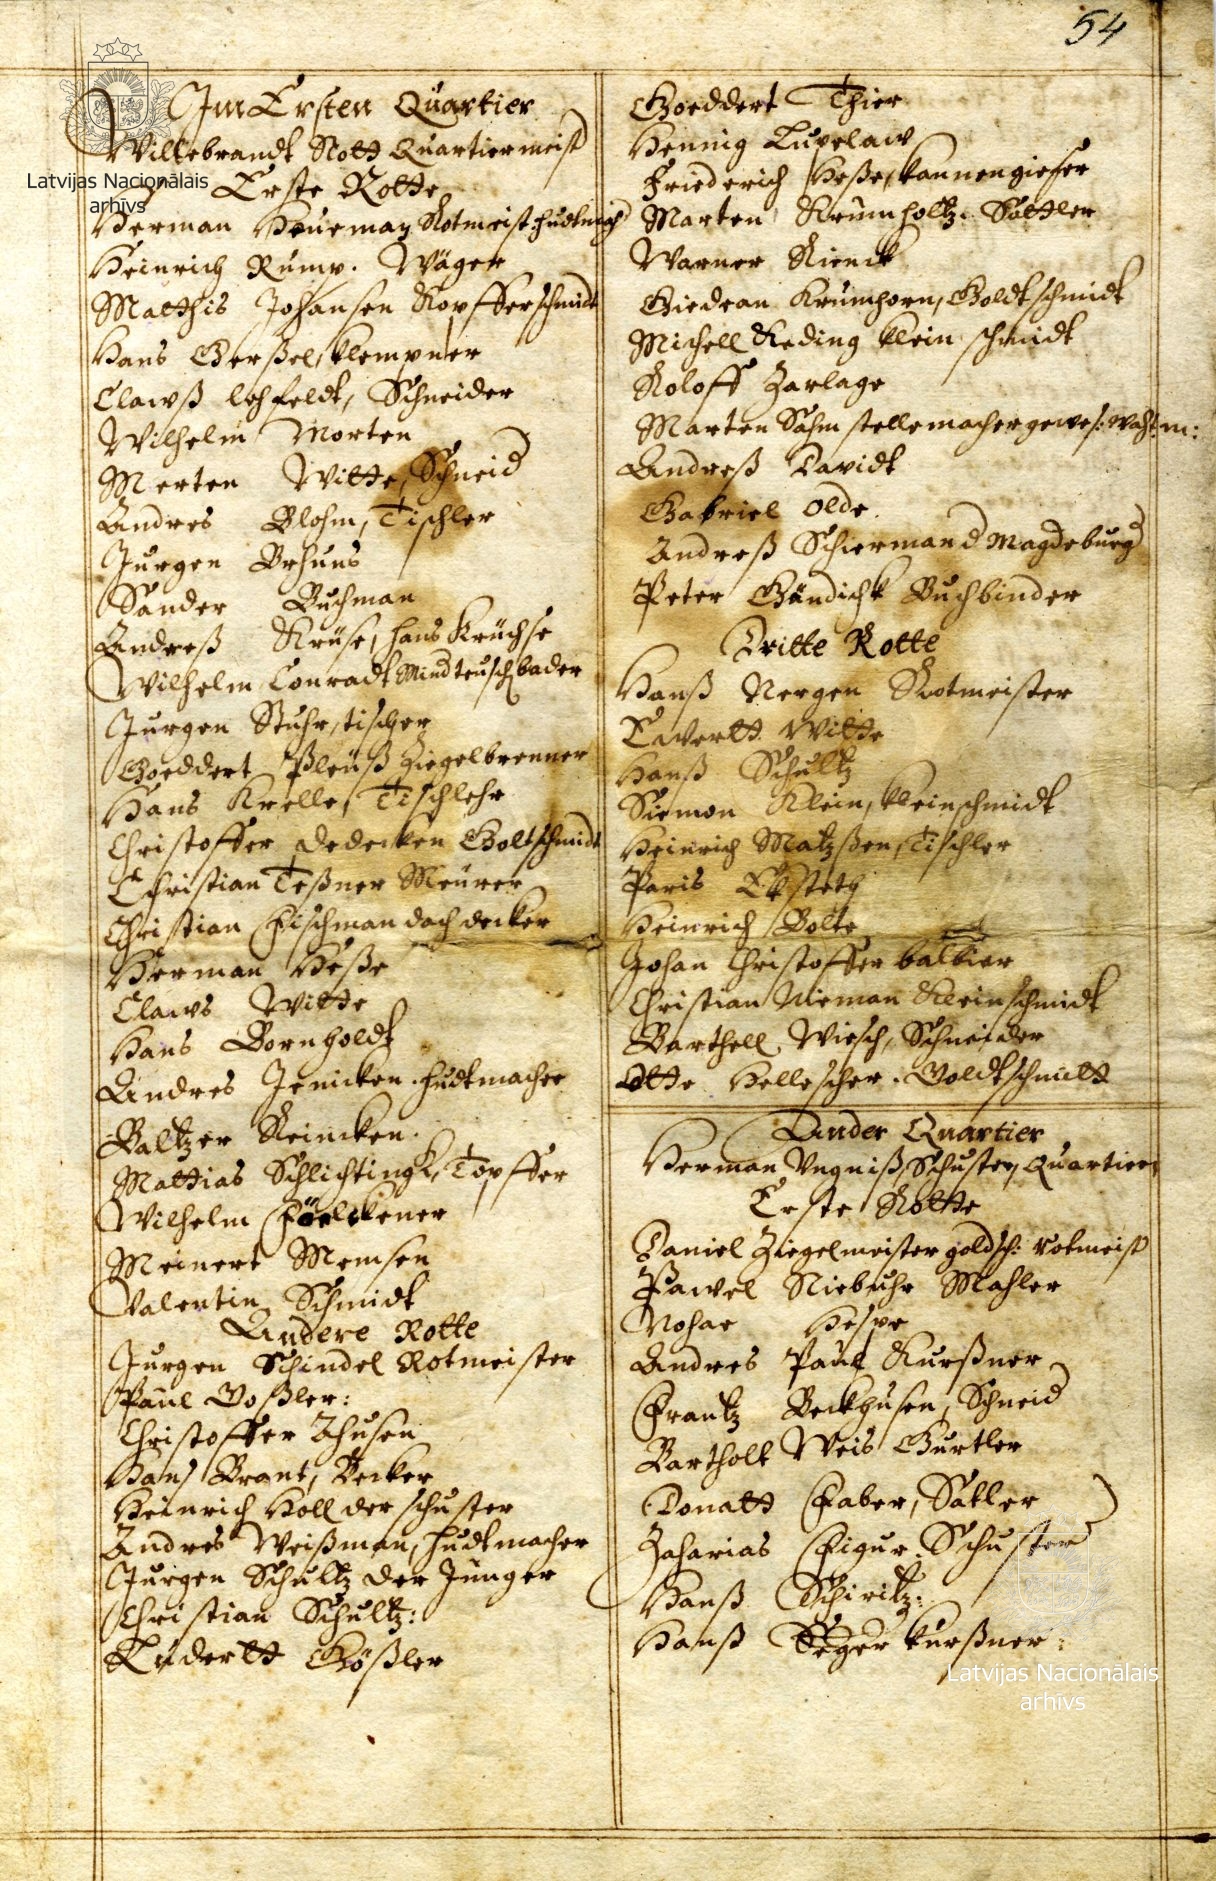 54
Im Ersten Quartier
Willebrandt Nott Quartiermeist
Erste Rotte
Herman Heuemay Rotmeist: hudtmach
Heinrich Rump. Wäger
Matthis Johansen Kopfferschmidt
Hans Gerßel, klempner
Clawß lehfeldt, Schneider
Wilhelm Morten
Merten Witte, Schneid
Andres Blohm, Tischler
Jurgen Brhuns
Sander Buchman
Andreß Krüse, hans Krüchse
Wilhelm Conradt Mindteusch bader
Jurgen Stuhr, tischer
Goeddert Pleuß Ziegelbrenner
Hans Krelle, Tischlehr
Christoffer Dedecken Goltschmidt
Christian Teßner Meurer
Christian Fischman dachdecker
Herman Heße
Claws Witte
Hans Bornholdt
Andres Jenicken. hudtmacher
Baltzer Reincken.
Mattias Schlichtingk, Töpffer
Wilhelm Föelckener
Meinert Memsen
Valentin Schmidt
Andere Rotte
Jurgen Schindel Rotmeister
Paul Voßler:
Christoffer Ahusen
Hans Brant, Becker
Heinrich Holl der schuster
Andres Weißman, hudtmacher
Jurgen Schultz der Junger
Christian Schultz:
Ludertt Gößler
Goeddert Thier
Hennig Lupelaw
Friederich Heße, kannengieser
Marten Krumholtz. Sattler
Warner Rienck
Giedean Krumhorn, Goldtschmidt
Michell Reding klein schmidt
Roloff Zarlage
Marten Sahm stellemacher gewes: wacht:m:
Andreß Davidt
Gabriel Olde
Andreß Schierman d Magdeburg
Peter Gändichk Buchbinder
Dritte Rotte
Hanß Nergen Rotmeister
Ewertt Witte
Hanß Schultz
Siemon Klein, kleinschmidt
Heinrich Matzßen, Tischler
Paris
Heinrich Bolte
Johan Christoffer balbier
Christian Nieman Kleinschmidt
Barthell Wiesch, Schneider
Otto Hellescher. Goldtschmitt
Ander Quartier
Herman Ungniß, Schuster, Quartier:
Erste Rotte
Daniel Ziegelmeister goldsch: rotmeist
Pawel Niebuhr Mahler
Nohae Hespe
Andres Paul Kurßner
Frantz Beckhusen, Schneid
Bartholt Weis Gurtler
Donatt Faber, Satler
Zaharias Figur. Schuster
Hanß Schiritz:
Hanß Seger kurßner:
Latvijas Nacionālais
arhīvs
Latvijas Nacionālais
arhīvs